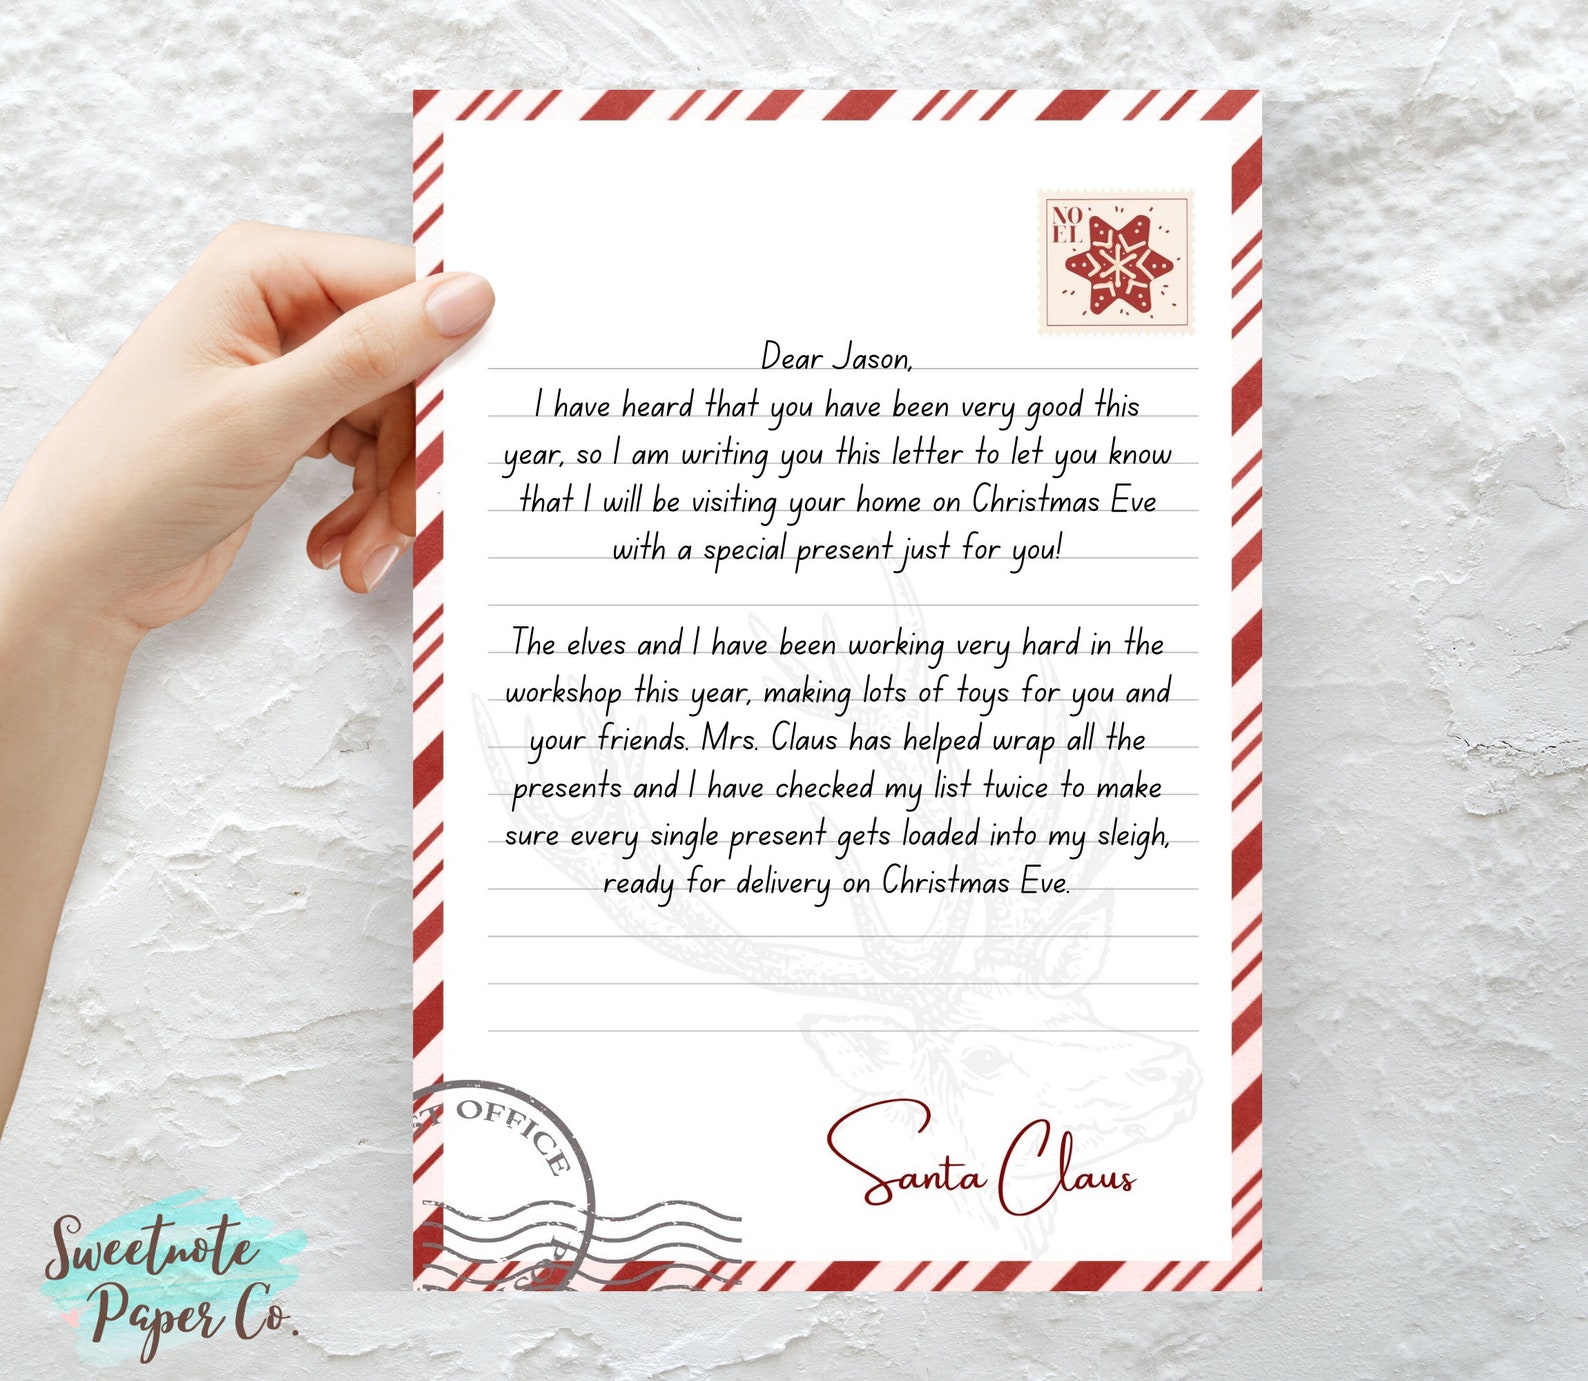 NO
EL
Dear Jason,
I have heard that you have been very good this
year, so I am writing you this letter to let you know
that I will be visiting your home on Christmas Eve
with a special present just for you!
The elves and I have been working very hard in the
workshop this year, making lots of toys for you and
your friends. Mrs. Claus has helped wrap all the
presents and I have checked my list twice to make
sure every single present gets loaded into my sleigh,
ready for delivery on Christmas Eve.
OFFICE
Santa Claus
Sweetnote
Paper Co.